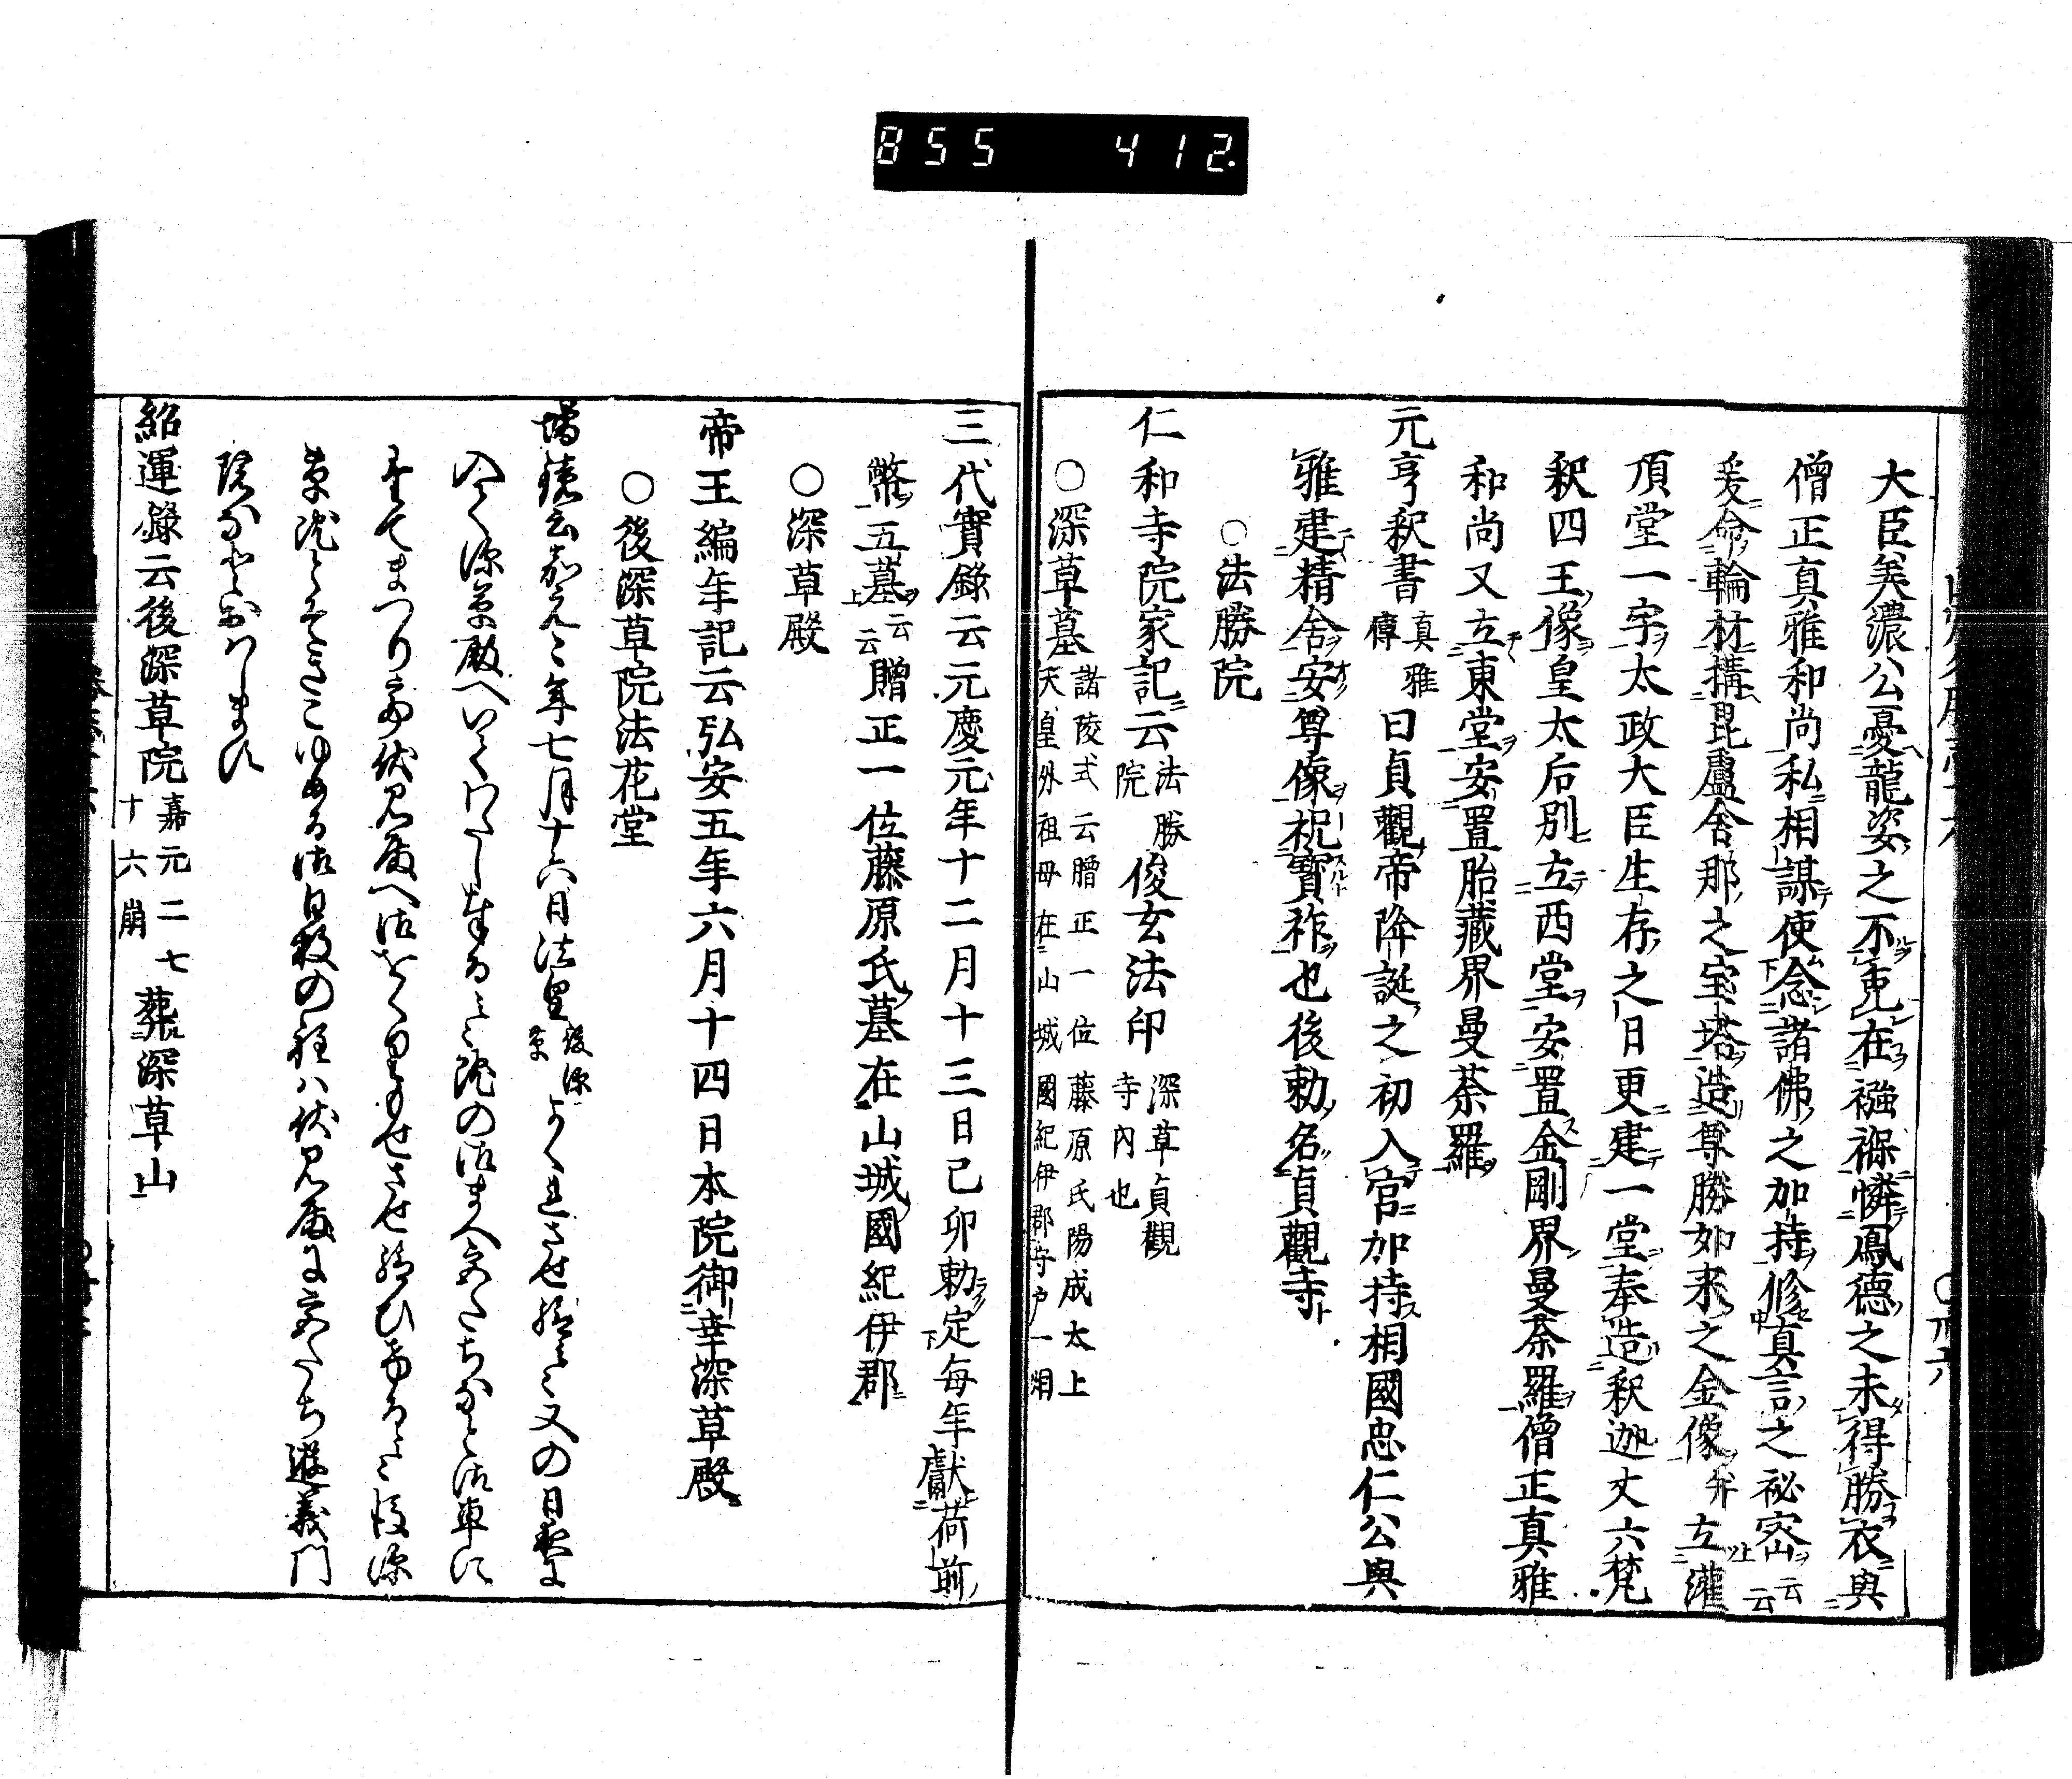 855 412.
大臣美濃公憂龍姿之不克在襁褓憐鳳德之未得勝衣與
僧正真雅和尚私相謀使念諸佛之加持修真言之祕密云云
爰命輪材構毘盧舍那之宝塔造尊勝如来之金像并立灌
頂堂一宇太政大臣生存之日更建一堂奉造釈迦丈六梵
釈四王像皇太后別立西堂安置金剛界曼荼羅僧正真雅
和尚又立東堂安置胎藏界曼荼羅
元亨釈書真雅傳曰貞觀帝降誕之初入官加持相國忠仁公與
雅建精舍安尊像祝寶祚也後勅名貞觀寺
○法勝院
仁和寺院家記云法勝院俊玄法印深草貞觀寺内也
○深草墓諸陵式云贈正一位藤原氏陽成太上天皇外祖母在山城國紀伊郡守戸一烟
三代實錄云元慶元年十二月十三日己卯勅定毎年獻荷前
幣五墓云云贈正一位藤原氏墓在山城國紀伊郡
○深草殿
帝王編年記云弘安五年六月十四日本院御幸深草殿
○後深草院法花堂
増鏡云嘉元二年七月十六日法皇後深草かくれさせ給て又の日夜に
入て深草殿へいてわたし奉る
院の御まへ
御車に
まてまつり
伏見殿へ
後深
草院ときこゆめる御日数の程ハ伏見殿に
遊義門
院なとおはします
紹運錄云後深草院嘉元二七十六崩葬深草山